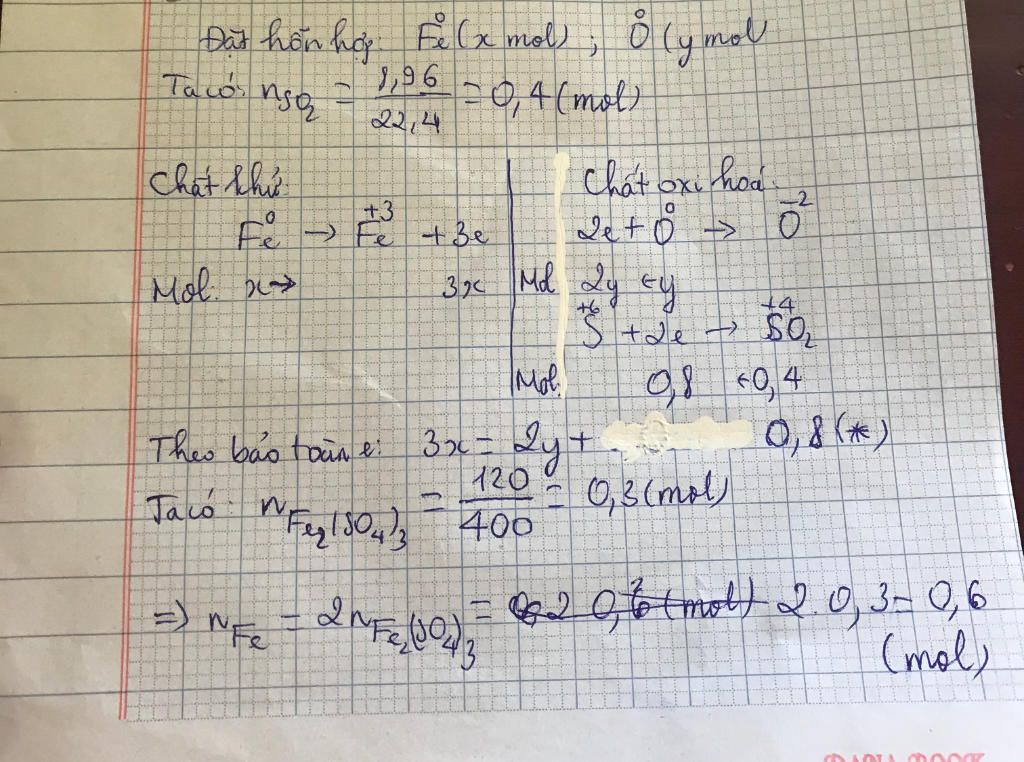 Đặt hỗn hợp: Fe⁰ (x mol) ; O⁰ (y mol
Ta có: nSO₂ = 8,96/22,4 = 0,4 (mol)
Chất khử:
Fe⁰ → Fe⁺³ + 3e
Mol: x → 3x
Chất oxi hoá:
2e + O⁰ → O⁻²
Mol 2y ← y
S⁺⁶ + 2e → S⁺⁴O₂
Mol: 0,8 ← 0,4
Theo bảo toàn e: 3x = 2y + 0,8 (*)
Ta có: nFe₂(SO₄)₃ = 120/400 = 0,3 (mol)
⇒ nFe = 2nFe₂(SO₄)₃ = 2.0,3 = 0,6
(mol)